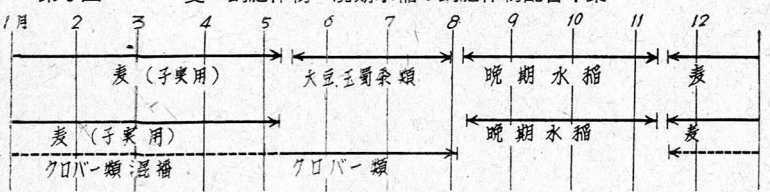 1月 2 3 4 5 6 7 8 9 10 11 12
麦(子実用) 大豆、玉蜀黍類 晩期水稲 麦
麦(子実用) 晩期水稲 麦
クロバー類混播 クロバー類